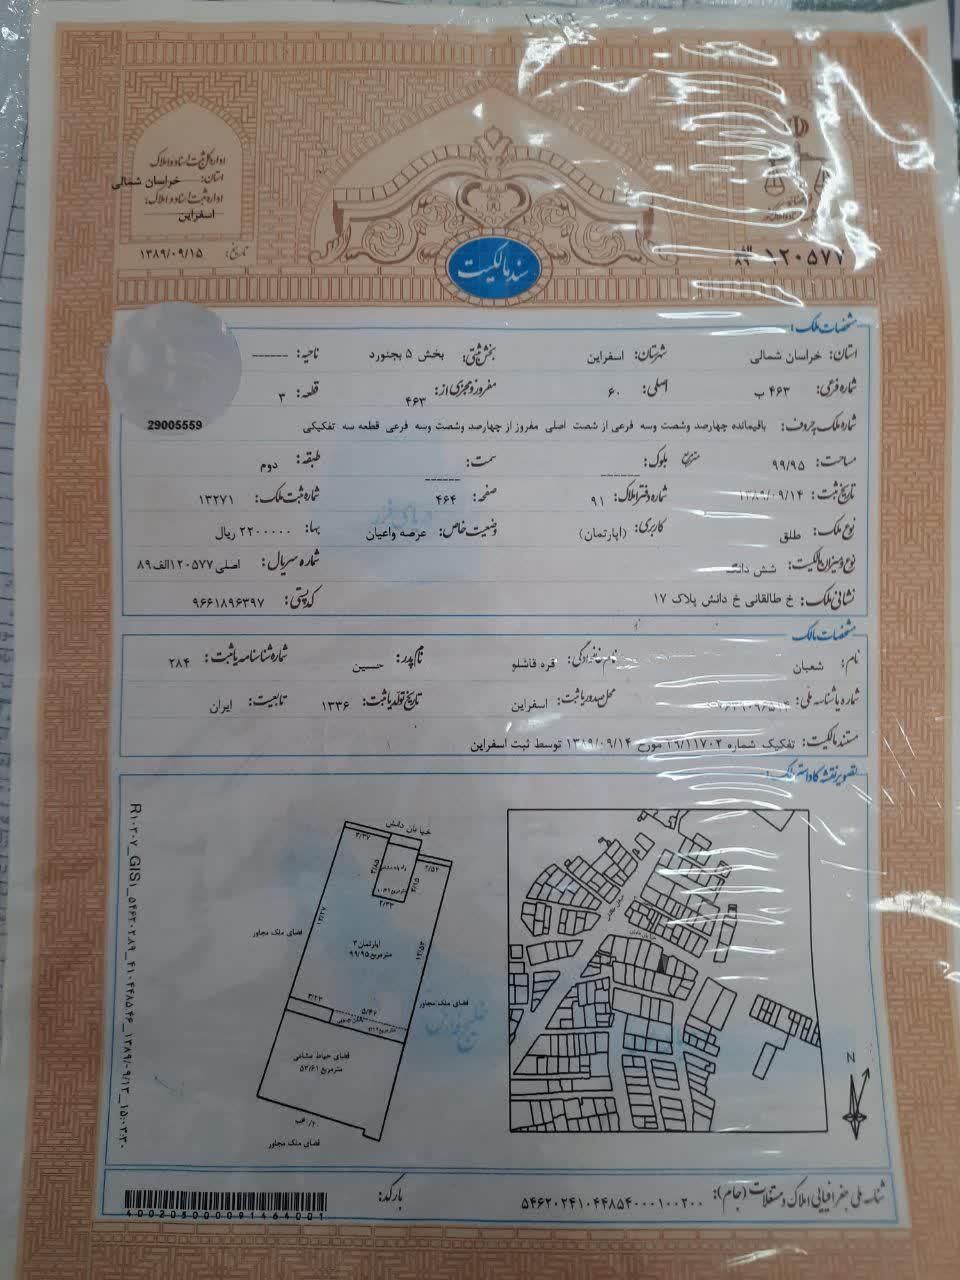 اداره کل ثبت اسناد و املاک
استان: خراسان شمالی
اداره ثبت اسناد و املاک:
اسفراین
تاریخ: ۱۳۸۹/۰۹/۱۵
الف ۸۹ ۱۲۰۵۷۷
سند مالکیت
مشخصات ملک:
استان: خراسان شمالی شهرستان: اسفراین بخش ثبتی: بخش ۵ بجنورد ناحیه: ------
شماره فرعی: ۴۶۳ ب اصلی: ۶۰ مفروز و مجزی از: ۴۶۳ قطعه: ۳
شماره ملک به حروف: باقیمانده چهارصد وشصت وسه فرعی از شصت اصلی مفروز از چهارصد وشصت وسه فرعی قطعه سه تفکیکی
29005559
مساحت: ۹۹/۹۵ مترمربع بلوک: ------ سمت: ------ طبقه: دوم
تاریخ ثبت: ۱۳۸۹/۰۹/۱۴ شماره دفتر املاک: ۹۱ صفحه: ۴۶۴ شماره ثبت ملک: ۱۳۲۷۱
نوع ملک: طلق کاربری: (اپارتمان) وضعیت خاص: عرصه واعیان بها: ۲۲۰۰۰۰۰ ریال
نوع و میزان مالکیت: شش دانگ شماره سریال: اصلی۱۲۰۵۷۷الف۸۹
نشانی ملک: خ طالقانی خ دانش پلاک ۱۷ کد پستی: ۹۶۶۱۸۹۶۳۹۷
مشخصات مالک
نام: شعبان نام خانوادگی: قره قاشلو نام پدر: حسین شماره شناسنامه یا ثبت: ۲۸۴
شماره یا شناسه ملی: محل صدور یا ثبت: اسفراین تاریخ تولد یا ثبت: ۱۳۳۶ تابعیت: ایران
مستند مالکیت: تفکیک شماره ۲۶/۱۱۷۰۲ مورخ ۱۳۸۹/۰۹/۱۴ توسط ثبت اسفراین
تصویر نقشه کاداستر ملک:
خیابان دانش
۳/۳۷
۲/۵۲
۳/۸۵
۳/۱۵
۲/۳۳
فضای ملک مجاور
آپارتمان ۳
۹۹/۹۵ مترمربع
فضای ملک مجاور
۳/۲۳
۵/۴۲
فضای حیاط مشاعی
۵۳/۶۱ مترمربع
فضای ملک مجاور
N
شناسه ملی جغرافیایی املاک و مستغلات (جام): ۵۴۶۲۰۲۴۱۰۴۴۸۵۴۰۰۰۱۰۰۲۰۰
بارکد:
400205000091464001